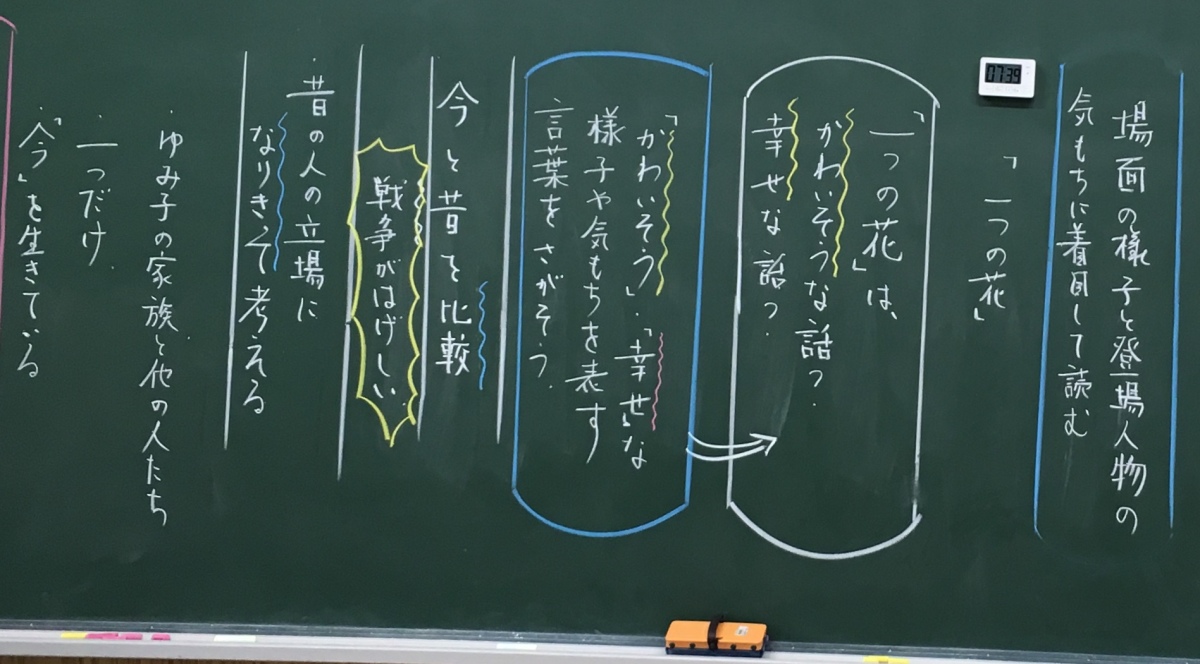 場面の様子と登場人物の
気もちに着目して読む
「一つの花」
17:39
「一つの花」は、
かわいそうな話？
幸せな話？
「かわいそう」・「幸せ」な
様子や気もちを表す
言葉をさがそう。
今と昔を比較
戦争がはげしい
・昔の人の立場に
なりきって考える
・ゆみ子の家族と他の人たち
・一つだけ
・「今」を生きている